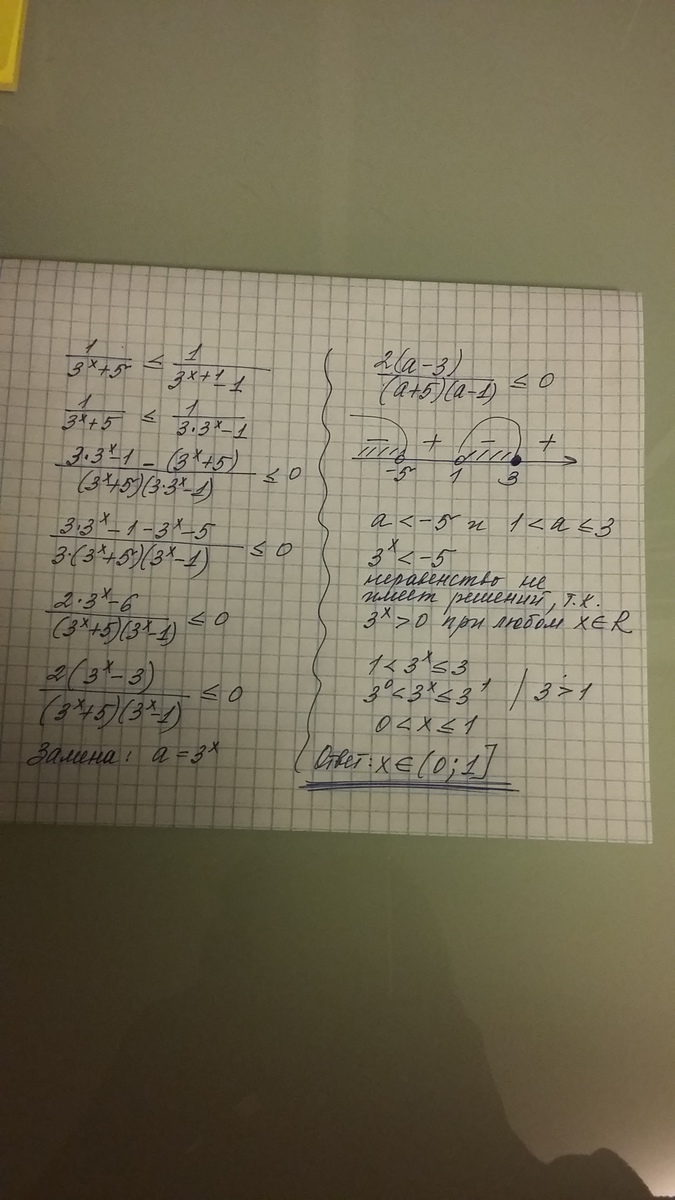 1/(3^x+5) ≤ 1/(3^(x+1)-1)
1/(3^x+5) ≤ 1/(3·3^x-1)
(3·3^x-1-(3^x+5))/((3^x+5)(3·3^x-1)) ≤ 0
(3·3^x-1-3^x-5)/(3·(3^x+5)(3^x-1)) ≤ 0
(2·3^x-6)/((3^x+5)(3^x-1)) ≤ 0
2(3^x-3)/((3^x+5)(3^x-1)) ≤ 0
Замена: a=3^x
2(a-3)/((a+5)(a-1)) ≤ 0
- + - +
-5 1 3
a<-5 и 1<a≤3
3^x<-5
неравенство не
имеет решений, т.к.
3^x>0 при любом x∈R
1<3^x≤3
3^0<3^x≤3^1 / 3>1
0<x≤1
Ответ: x∈(0;1]